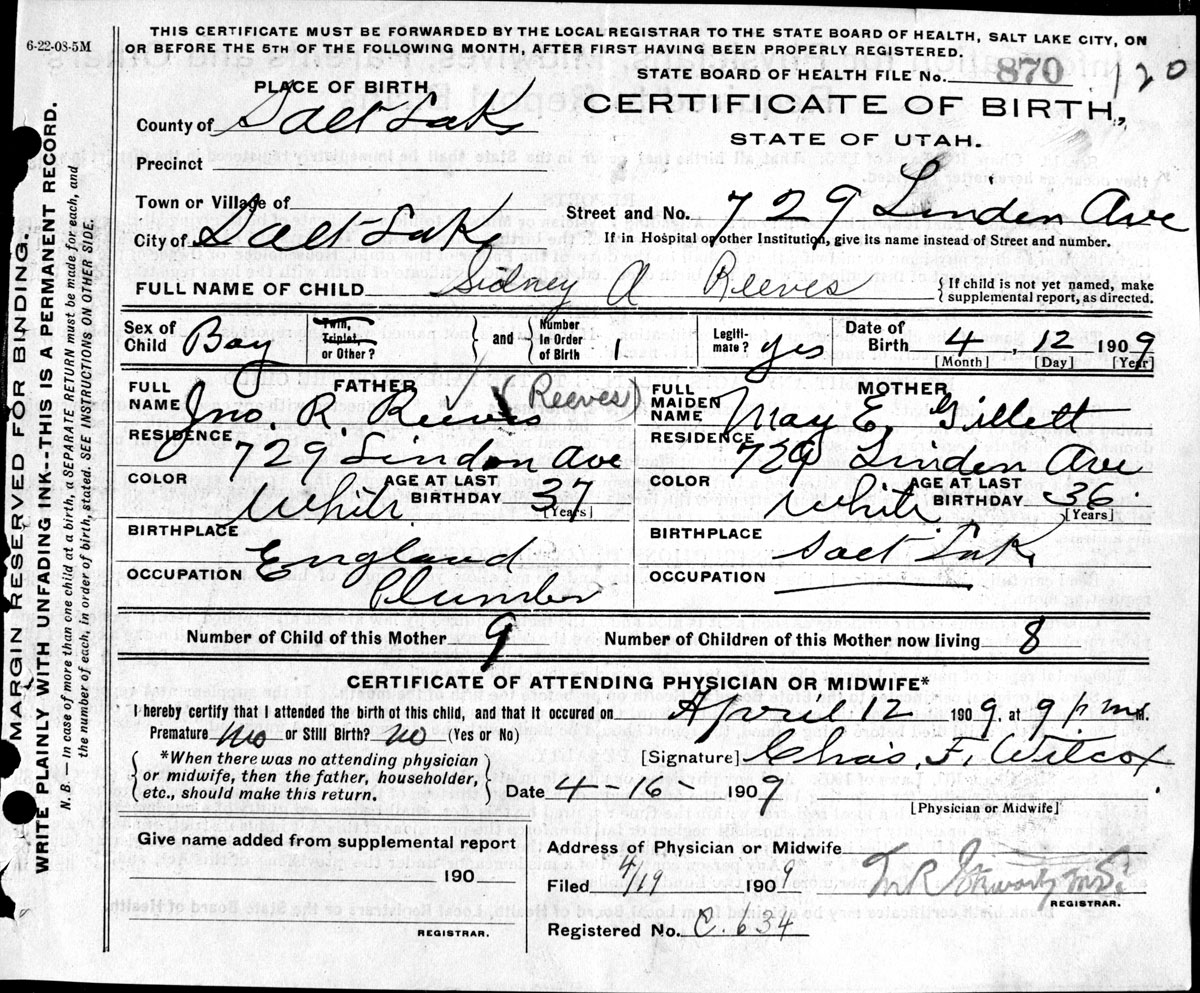 6-22-08-5M
THIS CERTIFICATE MUST BE FORWARDED BY THE LOCAL REGISTRAR TO THE STATE BOARD OF HEALTH, SALT LAKE CITY, ON
OR BEFORE THE 5TH OF THE FOLLOWING MONTH, AFTER FIRST HAVING BEEN PROPERLY REGISTERED.
STATE BOARD OF HEALTH FILE No. 870 120
PLACE OF BIRTH,
CERTIFICATE OF BIRTH,
County of Salt Lake
STATE OF UTAH.
Precinct
Town or Village of
Street and No. 729 Linden Ave
City of Salt Lake
If in Hospital or other Institution, give its name instead of Street and number.
FULL NAME OF CHILD Sidney A Reeves
{ If child is not yet named, make
supplemental report, as directed.
Sex of Child Boy
Twin, Triplet, or Other?
and
Number In Order of Birth 1
Legiti-mate? yes
Date of Birth 4, 12 1909
[Month] [Day] [Year]
FATHER
FULL NAME Jno. R. Reeves (Reeves)
RESIDENCE 729 Linden Ave
COLOR White
AGE AT LAST BIRTHDAY 37
[Years]
BIRTHPLACE England
OCCUPATION Plumber
MOTHER
FULL MAIDEN NAME May E. Gillett
RESIDENCE 729 Linden Ave
COLOR White
AGE AT LAST BIRTHDAY 36
[Years]
BIRTHPLACE Salt Lake
OCCUPATION
Number of Child of this Mother 9
Number of Children of this Mother now living 8
CERTIFICATE OF ATTENDING PHYSICIAN OR MIDWIFE*
I hereby certify that I attended the birth of this child, and that it occured on April 12 1909, at 9 p m M.
Premature No or Still Birth? no (Yes or No)
*When there was no attending physician
or midwife, then the father, householder,
etc., should make this return.
[Signature] Chas. F. Wilcox
Date 4-16- 1909
[Physician or Midwife]
Give name added from supplemental report
190
REGISTRAR.
Address of Physician or Midwife
Filed 4/19 1909
REGISTRAR.
Registered No. C. 634
MARGIN RESERVED FOR BINDING.
WRITE PLAINLY WITH UNFADING INK--THIS IS A PERMANENT RECORD.
N.B.— In case of more than one child at a birth, a SEPARATE RETURN must be made for each, and
the number of each, in order of birth, stated. SEE INSTRUCTIONS ON OTHER SIDE.